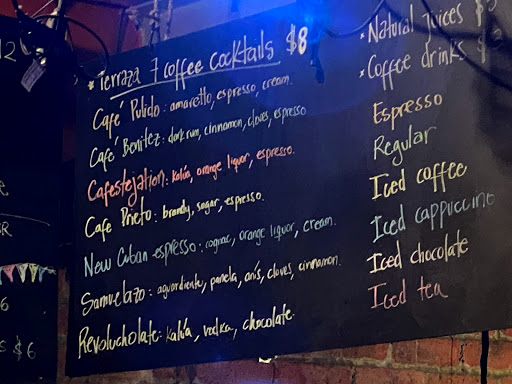 12
* Terraza 7 coffee cocktails $8
Café Pulido: amaretto, espresso, cream.
Café Benitez: dark rum, cinnamon, cloves, espresso
Cafestejation: kalúa, orange liquor, espresso.
Cafe Prieto: brandy, sugar, espresso.
New Cuban espresso: cognac, orange liquor, cream.
Samuelazo: aguardiente, panela, anís, cloves, cinnamon.
Revolucholate: kalúa, vodka, chocolate.
* Natural juices $
* Coffee drinks $
Espresso
Regular
Iced coffee
Iced cappuccino
Iced chocolate
Iced tea
6
$6